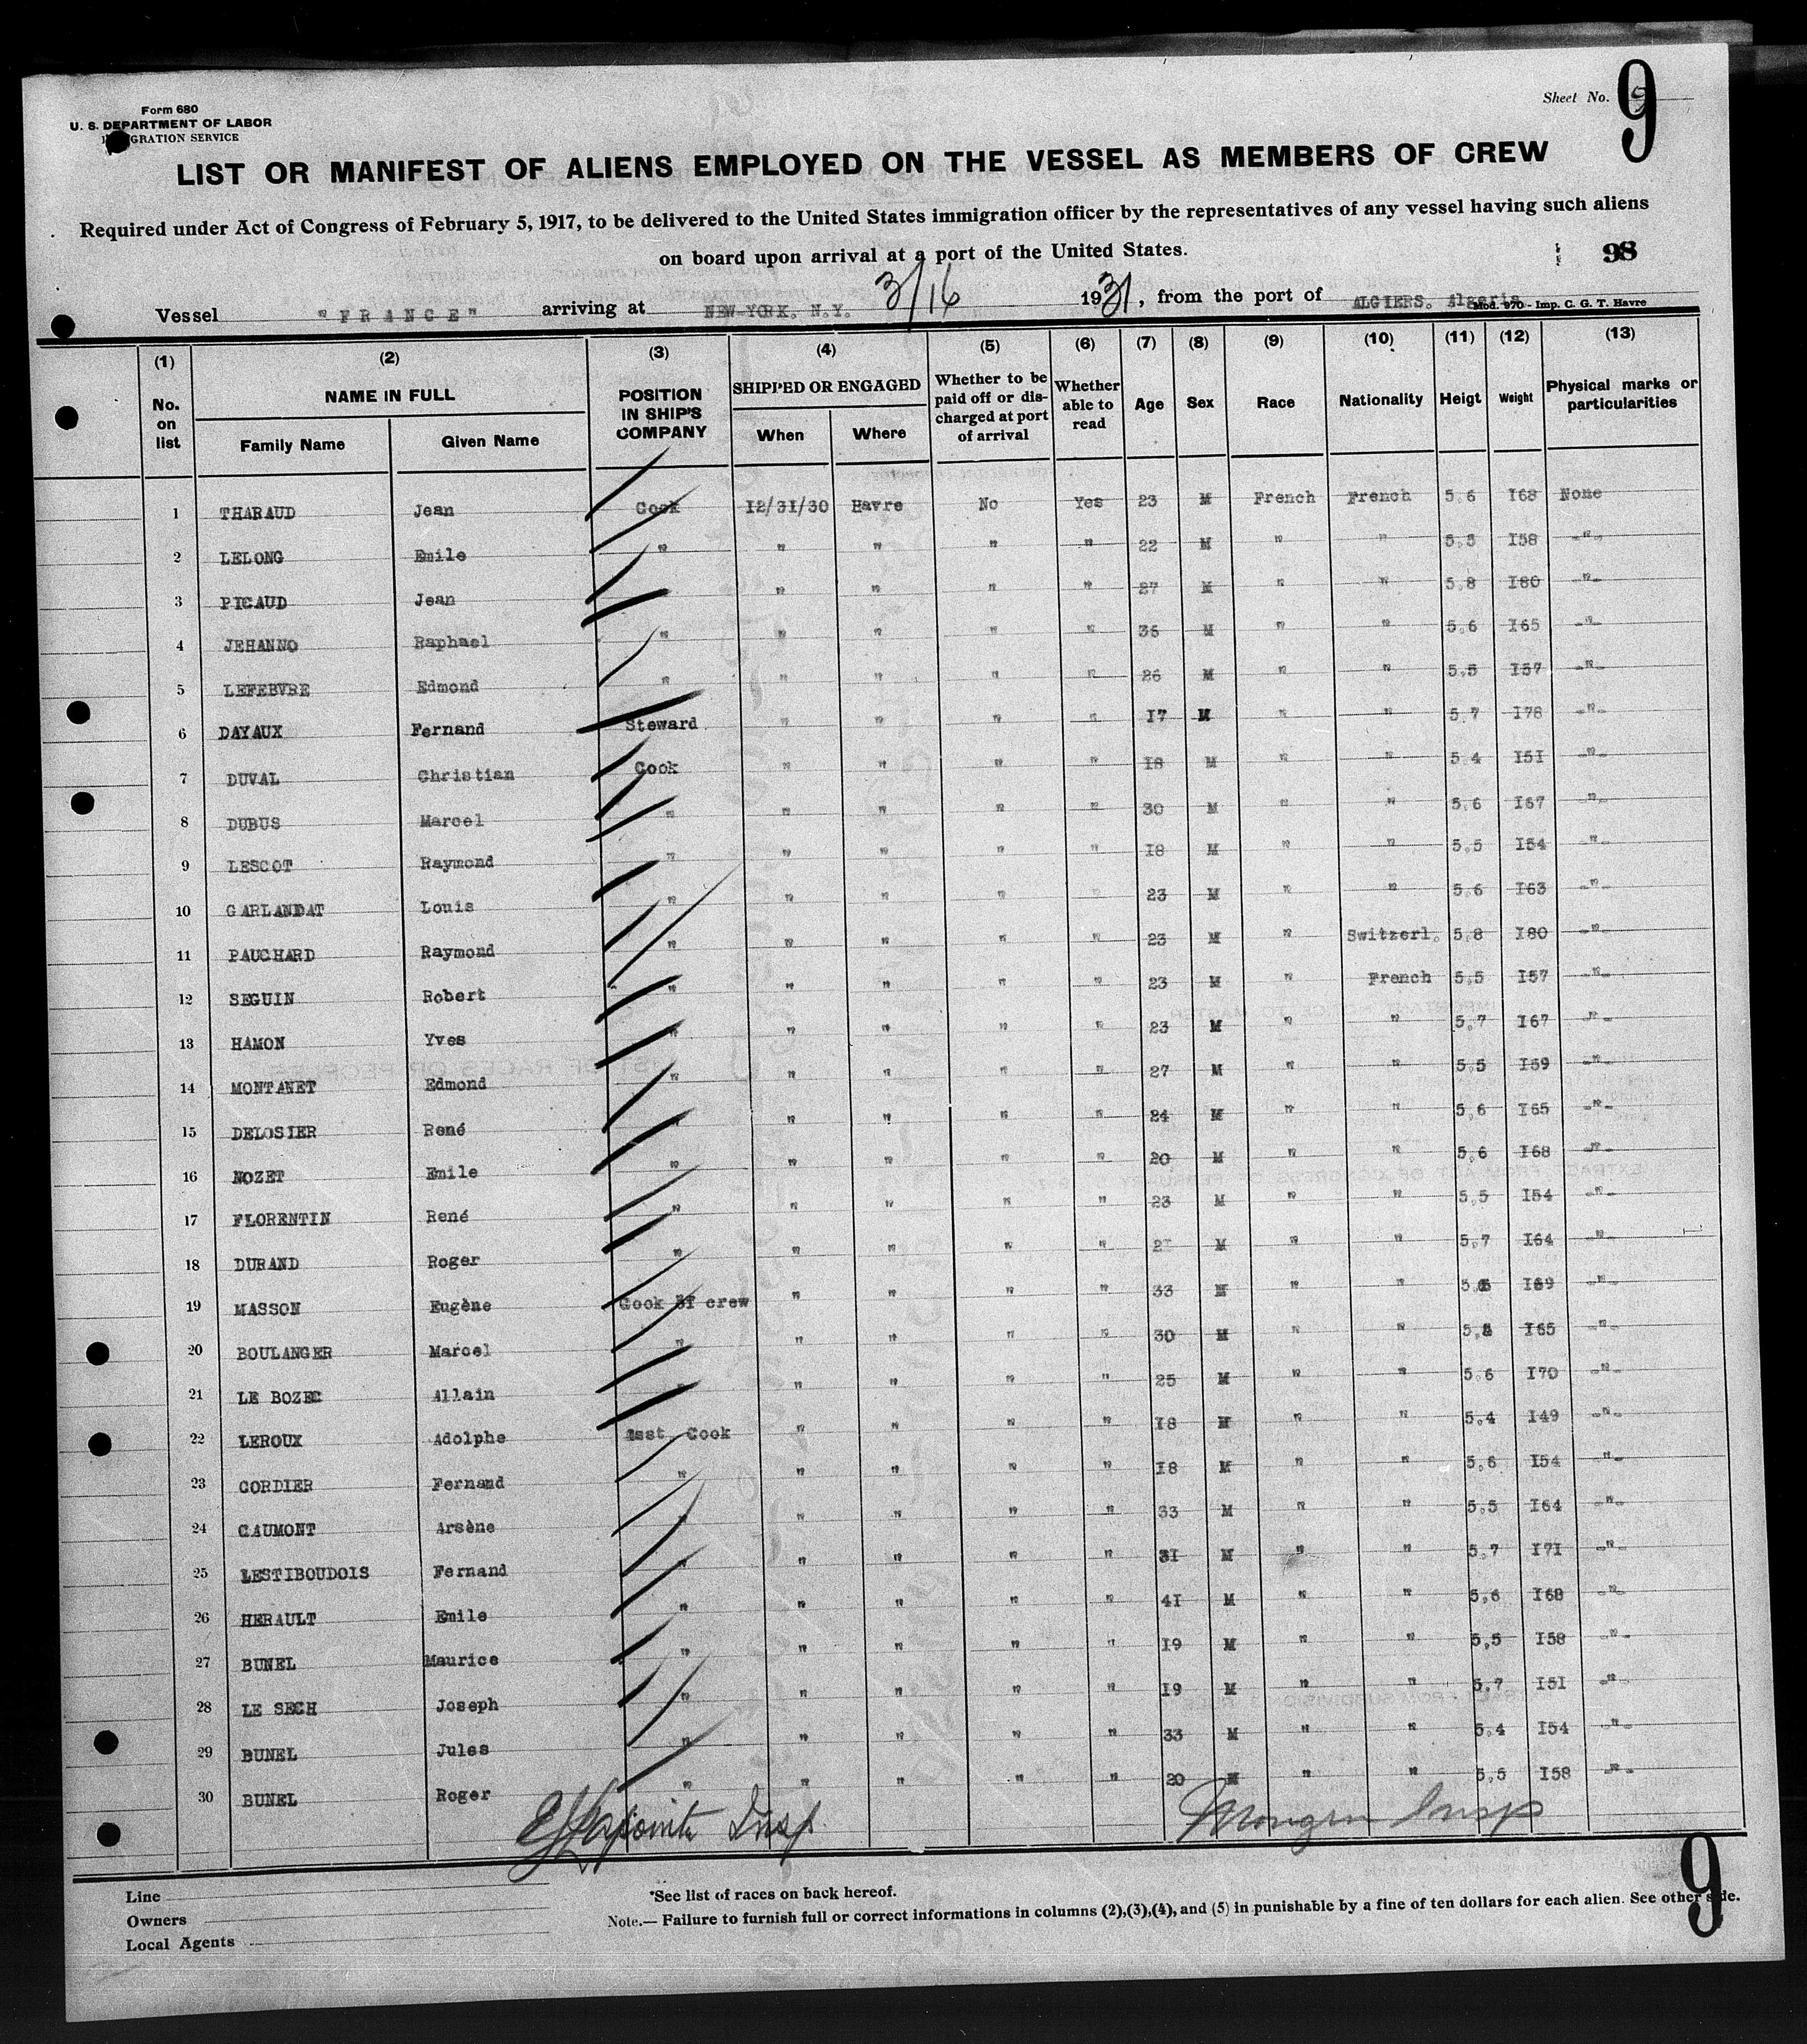 Form 680
U. S. DEPARTMENT OF LABOR
GRATION SERVICE
Sheet No. 9
9
LIST OR MANIFEST OF ALIENS EMPLOYED ON THE VESSEL AS MEMBERS OF CREW
Required under Act of Congress of February 5, 1917, to be delivered to the United States immigration officer by the representatives of any vessel having such aliens
on board upon arrival at a port of the United States.
98
Vessel "FRANCE" arriving at NEW-YORK. N.Y. 3/16 1931, from the port of ALGIERS. Algeria
Mod. 970 - Imp. C. G. T. Havre
(1) (2) (3) (4) (5) (6) (7) (8) (9) (10) (11) (12) (13)
No. on list NAME IN FULL POSITION IN SHIP'S COMPANY SHIPPED OR ENGAGED Whether to be paid off or discharged at port of arrival Whether able to read Age Sex Race Nationality Heigt Weight Physical marks or particularities
Family Name Given Name When Where
1 THARAUD Jean Cook 12/31/30 Havre No Yes 23 M French French 5.6 I68 None
2 LELONG Emile " " " " " 22 M " " 5.5 I58 -"-
3 PICAUD Jean " " " " 27 M " " 5.8 I80 -"-
4 JEHANNO Raphael " " " " " 35 M " " 5.6 I65 -"-
5 LEFEBVRE Edmond " " " " " 26 M " " 5.5 I57 -"-
6 DAYAUX Fernand Steward " " " " I7 M " " 5.7 I78 -"-
7 DUVAL Christian Cook " " " " I8 M " " 5.4 I5I -"-
8 DUBUS Marcel " " " " " 30 M " " 5.6 I67 -"-
9 LESCOT Raymond " " " " " I8 M " " 5.5 I54 -"-
10 GARLANDAT Louis " " " " " 23 M " " 5.6 I63 -"-
11 PAUCHARD Raymond " " " " " 23 M " Switzerl. 5.8 I80 -"-
12 SEGUIN Robert " " " " " 23 M " French 5.5 I57 -"-
13 HAMON Yves " " " " " 23 M " " 5.7 I67 -"-
14 MONTANET Edmond " " " " " 27 M " " 5.5 I59 -"-
15 DELOSIER René " " " " " 24 M " " 5.6 I65 -"-
16 NOZET Emile " " " " " 20 M " " 5.6 I68 -"-
17 FLORENTIN René " " " " " 23 M " " 5.5 I54 -"-
18 DURAND Roger " " " " " M " " 5.7 I64 -"-
19 MASSON Eugène Cook of crew " " " " 33 M " " I69 -"-
20 BOULANGER Marcel " " " " " 30 M " " I65 -"-
21 LE BOZEC Allain " " " " " 25 M " " 5.6 I70 -"-
22 LEROUX Adolphe Asst. Cook " " " " I8 M " " 5.4 I49 -"-
23 CORDIER Fernand " " " " " I8 M " " 5.6 I54 -"-
24 CAUMONT Arsène " " " " " 33 M " " 5.5 I64 -"-
25 LESTIBOUDOIS Fernand " " " " " 3I M " " 5.7 I7I -"-
26 HERAULT Emile " " " " " 4I M " " 5.6 I68 -"-
27 BUNEL Maurice " " " " " I9 M " " 5.5 I58 -"-
28 LE SECH Joseph " " " " " I9 M " " 5.7 I5I -"-
29 BUNEL Jules " " " " " 33 M " " 5.4 I54 -"-
30 BUNEL Roger " " " " " 20 M " " 5.5 I58 -"-
Lapointe Insp. Insp
Line
Owners
Local Agents
*See list of races on back hereof.
Note.— Failure to furnish full or correct informations in columns (2),(3),(4), and (5) in punishable by a fine of ten dollars for each alien. See other side.
9